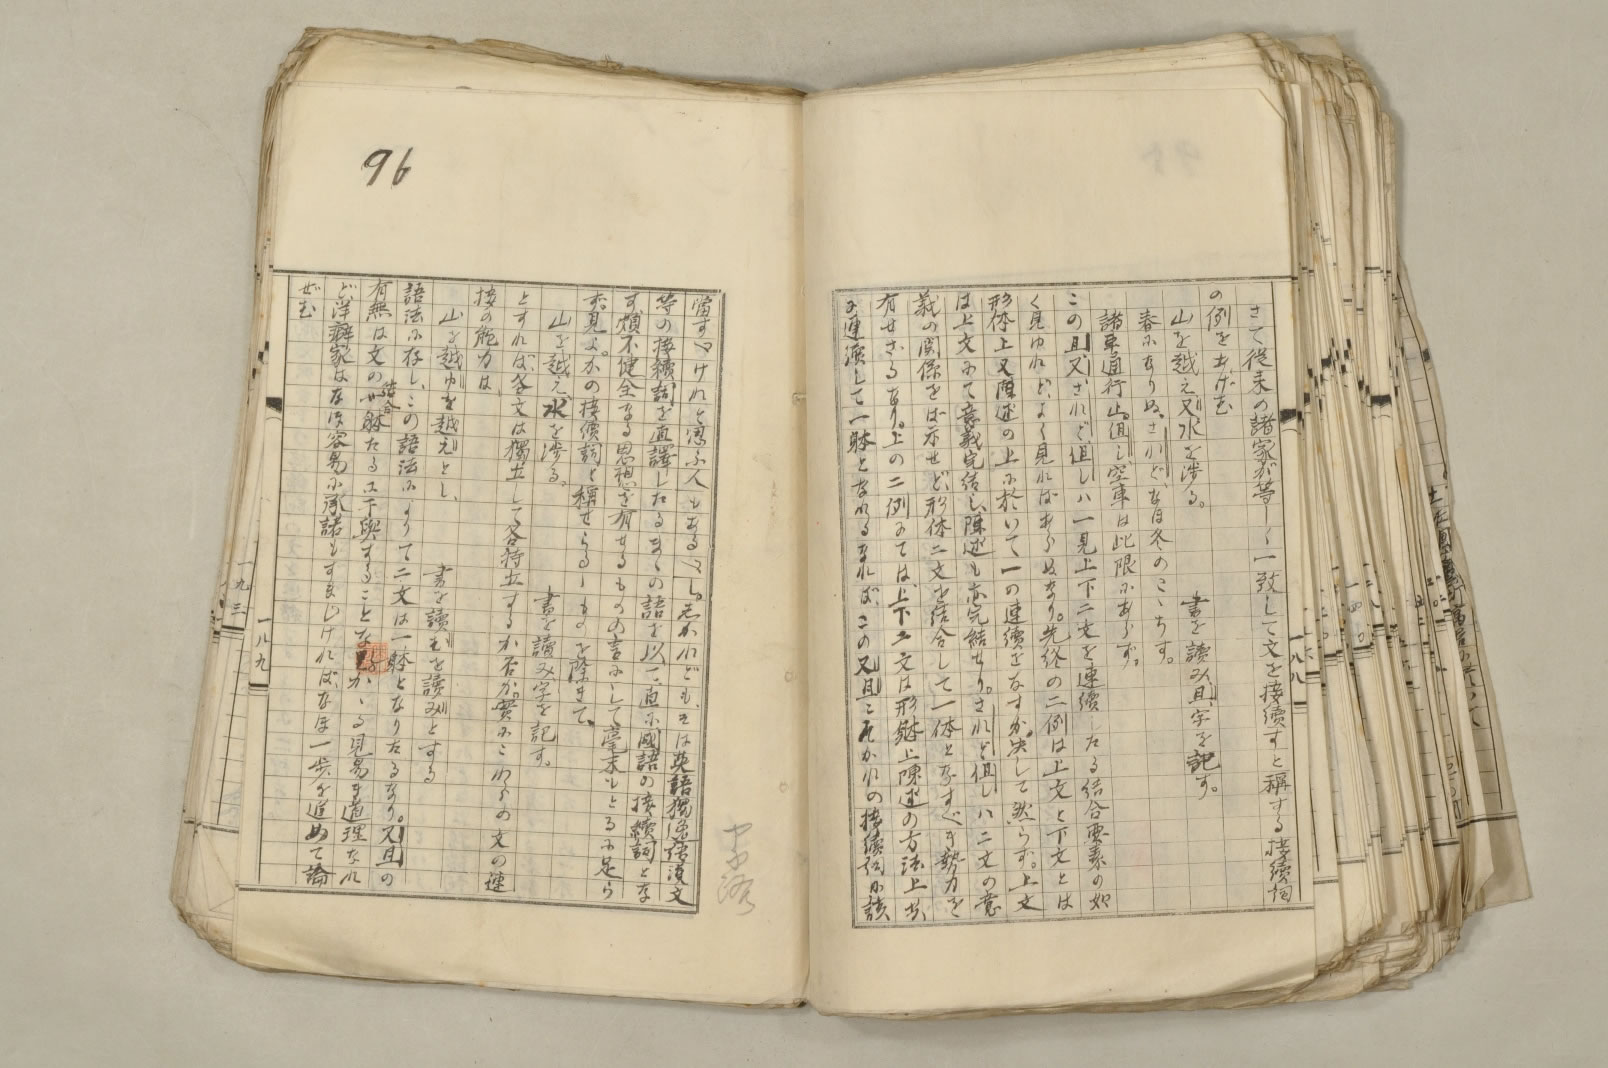 さて從来の諸家が等しく一致して文を接續すと稱する接續詞
の例をあげむ
山を越え、又水を渉る。
書を讀み、且、字を記す。
春になりぬ。されど、なほ冬のこゝちす。
諸車通行止。但し空車は此限にあらず。
この且、又、されど、但しハ一見上下二文を連續したる結合要素の如
く見ゆれど、よく見ればあらぬなり。先終の二例は上文と下文とは
形体上又陳述の上に於いて一の連續をなすか。决して然らず。上文
は上文にて意義完結し、陳述も亦完結せり。されど、但しハ二文の意
義の関係をば示せど、形体二文を結合して一体となすべき勢力を
有せざるなり。上の二例にては、上下二文は形躰上陳述の方法上共
に連續して一躰となれるなれば、この又、且こそかれの接續詞に該
當すべけれと思ふ人もあるべし。されども、そは英語獨逸語漢文
等の接續詞を直譯したる
の語を以て直に國語の接續詞とな
す煩不健全なる思想を有せるものの言にして毫末もとるに足ら
ず。見よ。かの接續詞と稱せらるゝものを除きて、
山を越え、水を渉る。
書を讀み、字を記す。
とすれば、各文は獨立して各特立するか否か。實にこれらの文の連
接の能力は、
山を越ゆを越えとし、
書を讀むを讀みとする
語法に存し、この語法によりて二文は一躰となりたるなり。又、且の
有無は文の結合躰たるに干與することなし。かゝる見易き道理なれ
ど洋癖家はなほ容易に承諾もすまじければ、なほ一歩を進めて論
ぜむ
96
一八八
一八九
一九三